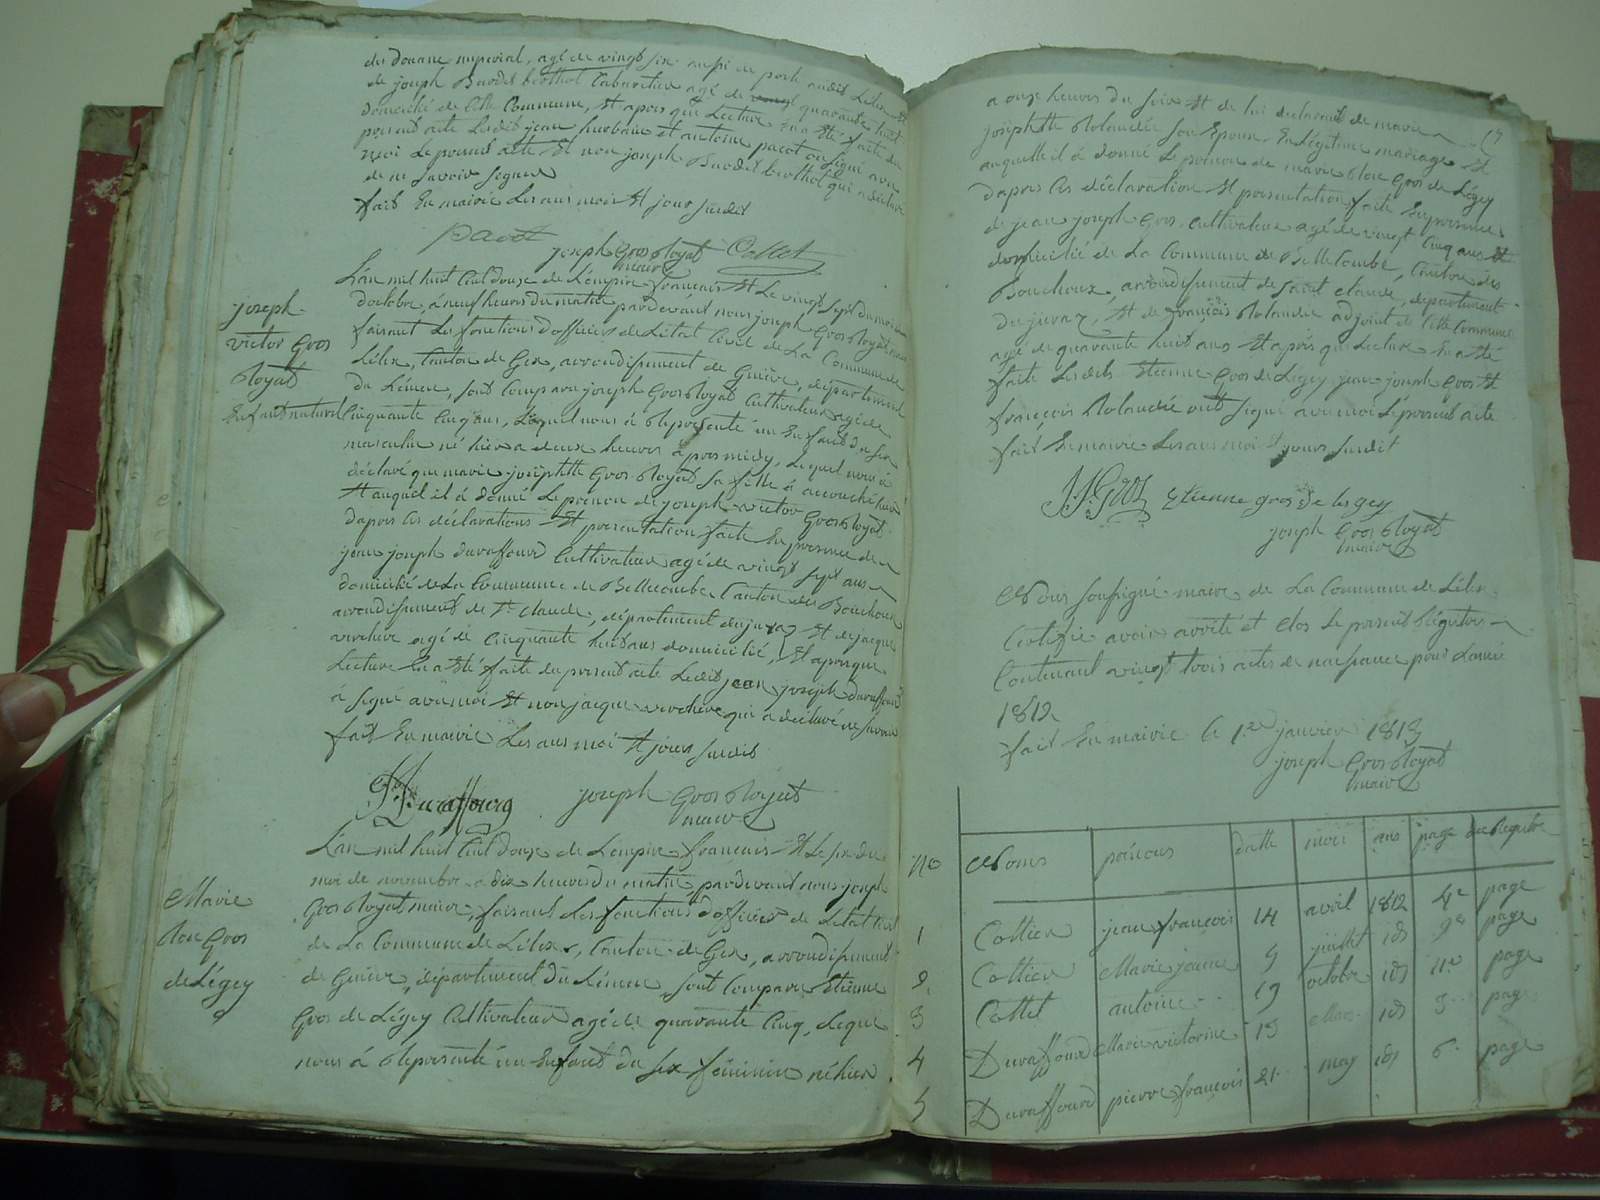 des douane imperial, agé de vingt six aussi de poste audit Lelex et
de joseph Baodet berthol Cabaretier agé de quarante huit
domicilié de cette Commune, Et apres que Lecture En a Eté faite du
present acte Lesdit jean hurbain et antoine pacot on signé avec
moi Le present acte Et non joseph Baodet berthol qui a déclaré
de ne savoir signer
fait En mairie Les ans mois Et jour susdit
pacot joseph Gros Royat Collet
maire
joseph
victor Gros
Royat
Enfant naturel
L'an mil huit Cent douze de L'empire français Et Le vingt sept du mois
d'octobre, à neuf heures du matin pardevant nous joseph Gros Royat maire
faisant Les fonctions d'officier de L'état Civil de La Commune de
Lélex, Canton de Gex, arrondissement de Genève, département
du Léman, sont Comparu joseph Gros Royat Cultivateur agé de
Cinquante Cinq ans, Lequel nous à Représenté un Enfant du sex
masculin né hier a deux heures après midy, Lequel nous à
déclaré que marie josephtte Gros Royat sa fille à accouché hier
Et auquel il à donné Le prénon de joseph victor Gros Royat
dapres Ces déclarations Et presentation faite En presence de
jean joseph duraffourd Cultivateur agé de vingt sept ans
domicilié de La Commune de Bellecombe Canton des Bouchoux
arrondissement de St Claude, département du jura, Et de jacque
agé de Cinquante huit ans domicilié, Et apres que
Lecture En a Eté faite du present acte Ledit jean joseph duraffourd
à signé avec moi Et non jacque qui a déclaré ne savoir
fait En mairie Les ans moi Et jour susdit
J. J. Duraffourg joseph Gros Royat
maire
Marie
Rose Gros
de Légey
L'an mil huit Cent douze de L'empire français Et Le six du
moi de novembre a dix heures du matin pardevant nous joseph
Gros Royat maire, faisant Les fonctions d'officier de L'etat Civil
de La Commune de Lélex, Canton de Gex, arrondissement
de Genève, département du Léman, sont Comparu Etienne
Gros de Légey Cultivateur agé de quarante Cinq, Lequel
nous à Représenté un Enfant du sex féminin né hier
17
a onze heures du soir Et de lui declarant de marie
josephtte Rolandez son Epouse En Légitime mariage Et
auquelle il à donné Le prénon de marie Rose Gros de Légey
dapres Ces déclaration Et presentation faite En presence
de jean joseph Gros Cultivateur agé de vingt Cinq ans Et
domicilié de La Commune de Bellecombe, Canton des
Bouchoux, arrondissement de saint claude, département
du jura, Et de françois Rolandez adjoint de Cette Commune
agé de quarante huit ans Et après que Lecture En a été
faite Lesdits Etienne Gros de Légey, jean joseph Gros Et
françois Rolandez ont signé avec moi Le present acte
fait En mairie Les ans moi Et jours susdit
J. J. Gros Etienne gros de legey
joseph Gros Royat
maire
Nous soussigné maire de La Commune de Lélex
Certifie avoir arrêté et Clos Le present Régistre
Contenant vingt trois actes de naissance pour L'année
1812
fait En mairie le 1er janvier 1813
joseph Gros Royat
maire
No Noms prénons datte mois ans page du Registre
1 Cottier jean françois 14 avril 1812 4e page
2 Cottier Marie jeanne 9 juillet 181 9e page
3 Cottet antoine 19 octobre 181 11e page
4 Duraffourd Marie victorine 15 Mars 181 3 page
5 Duraffourd pierre françois 21 may 181 6 page